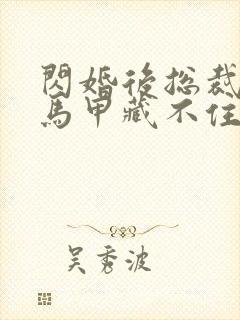 閃婚後总裁
馬甲藏不住
吴秀波